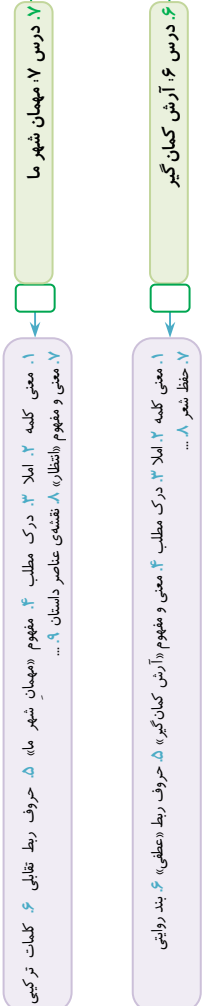 ۶. درس ۶: آرش کمان‌گیر
۱. معنی کلمه ۲. املا ۳. درک مطلب ۴. معنی و مفهوم «آرش کمان‌گیر» ۵. حروف ربط «عطفی» ۶. بند روایتی
۷. حفظ شعر ۸. ...
۷. درس ۷: مهمان شهر ما
۱. معنی کلمه ۲. املا ۳. درک مطلب ۴. مفهوم «مهمانِ شهر ما» ۵. حروف ربط تقابلی ۶. کلمات ترکیبی
۷. معنی و مفهوم «انتظار» ۸. نقشه‌ی عناصر داستان ۹. ...